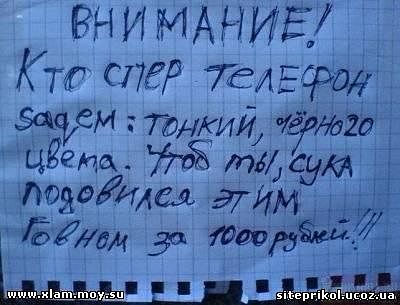 ВНИМАНИЕ!
Кто спер телефон
sagem: тонкий, чёрного
цвета. Чтоб ты, сука
подовился этим
Говном за 1000 рублей!!!
www.xlam.moy.su
siteprikol.ucoz.ua